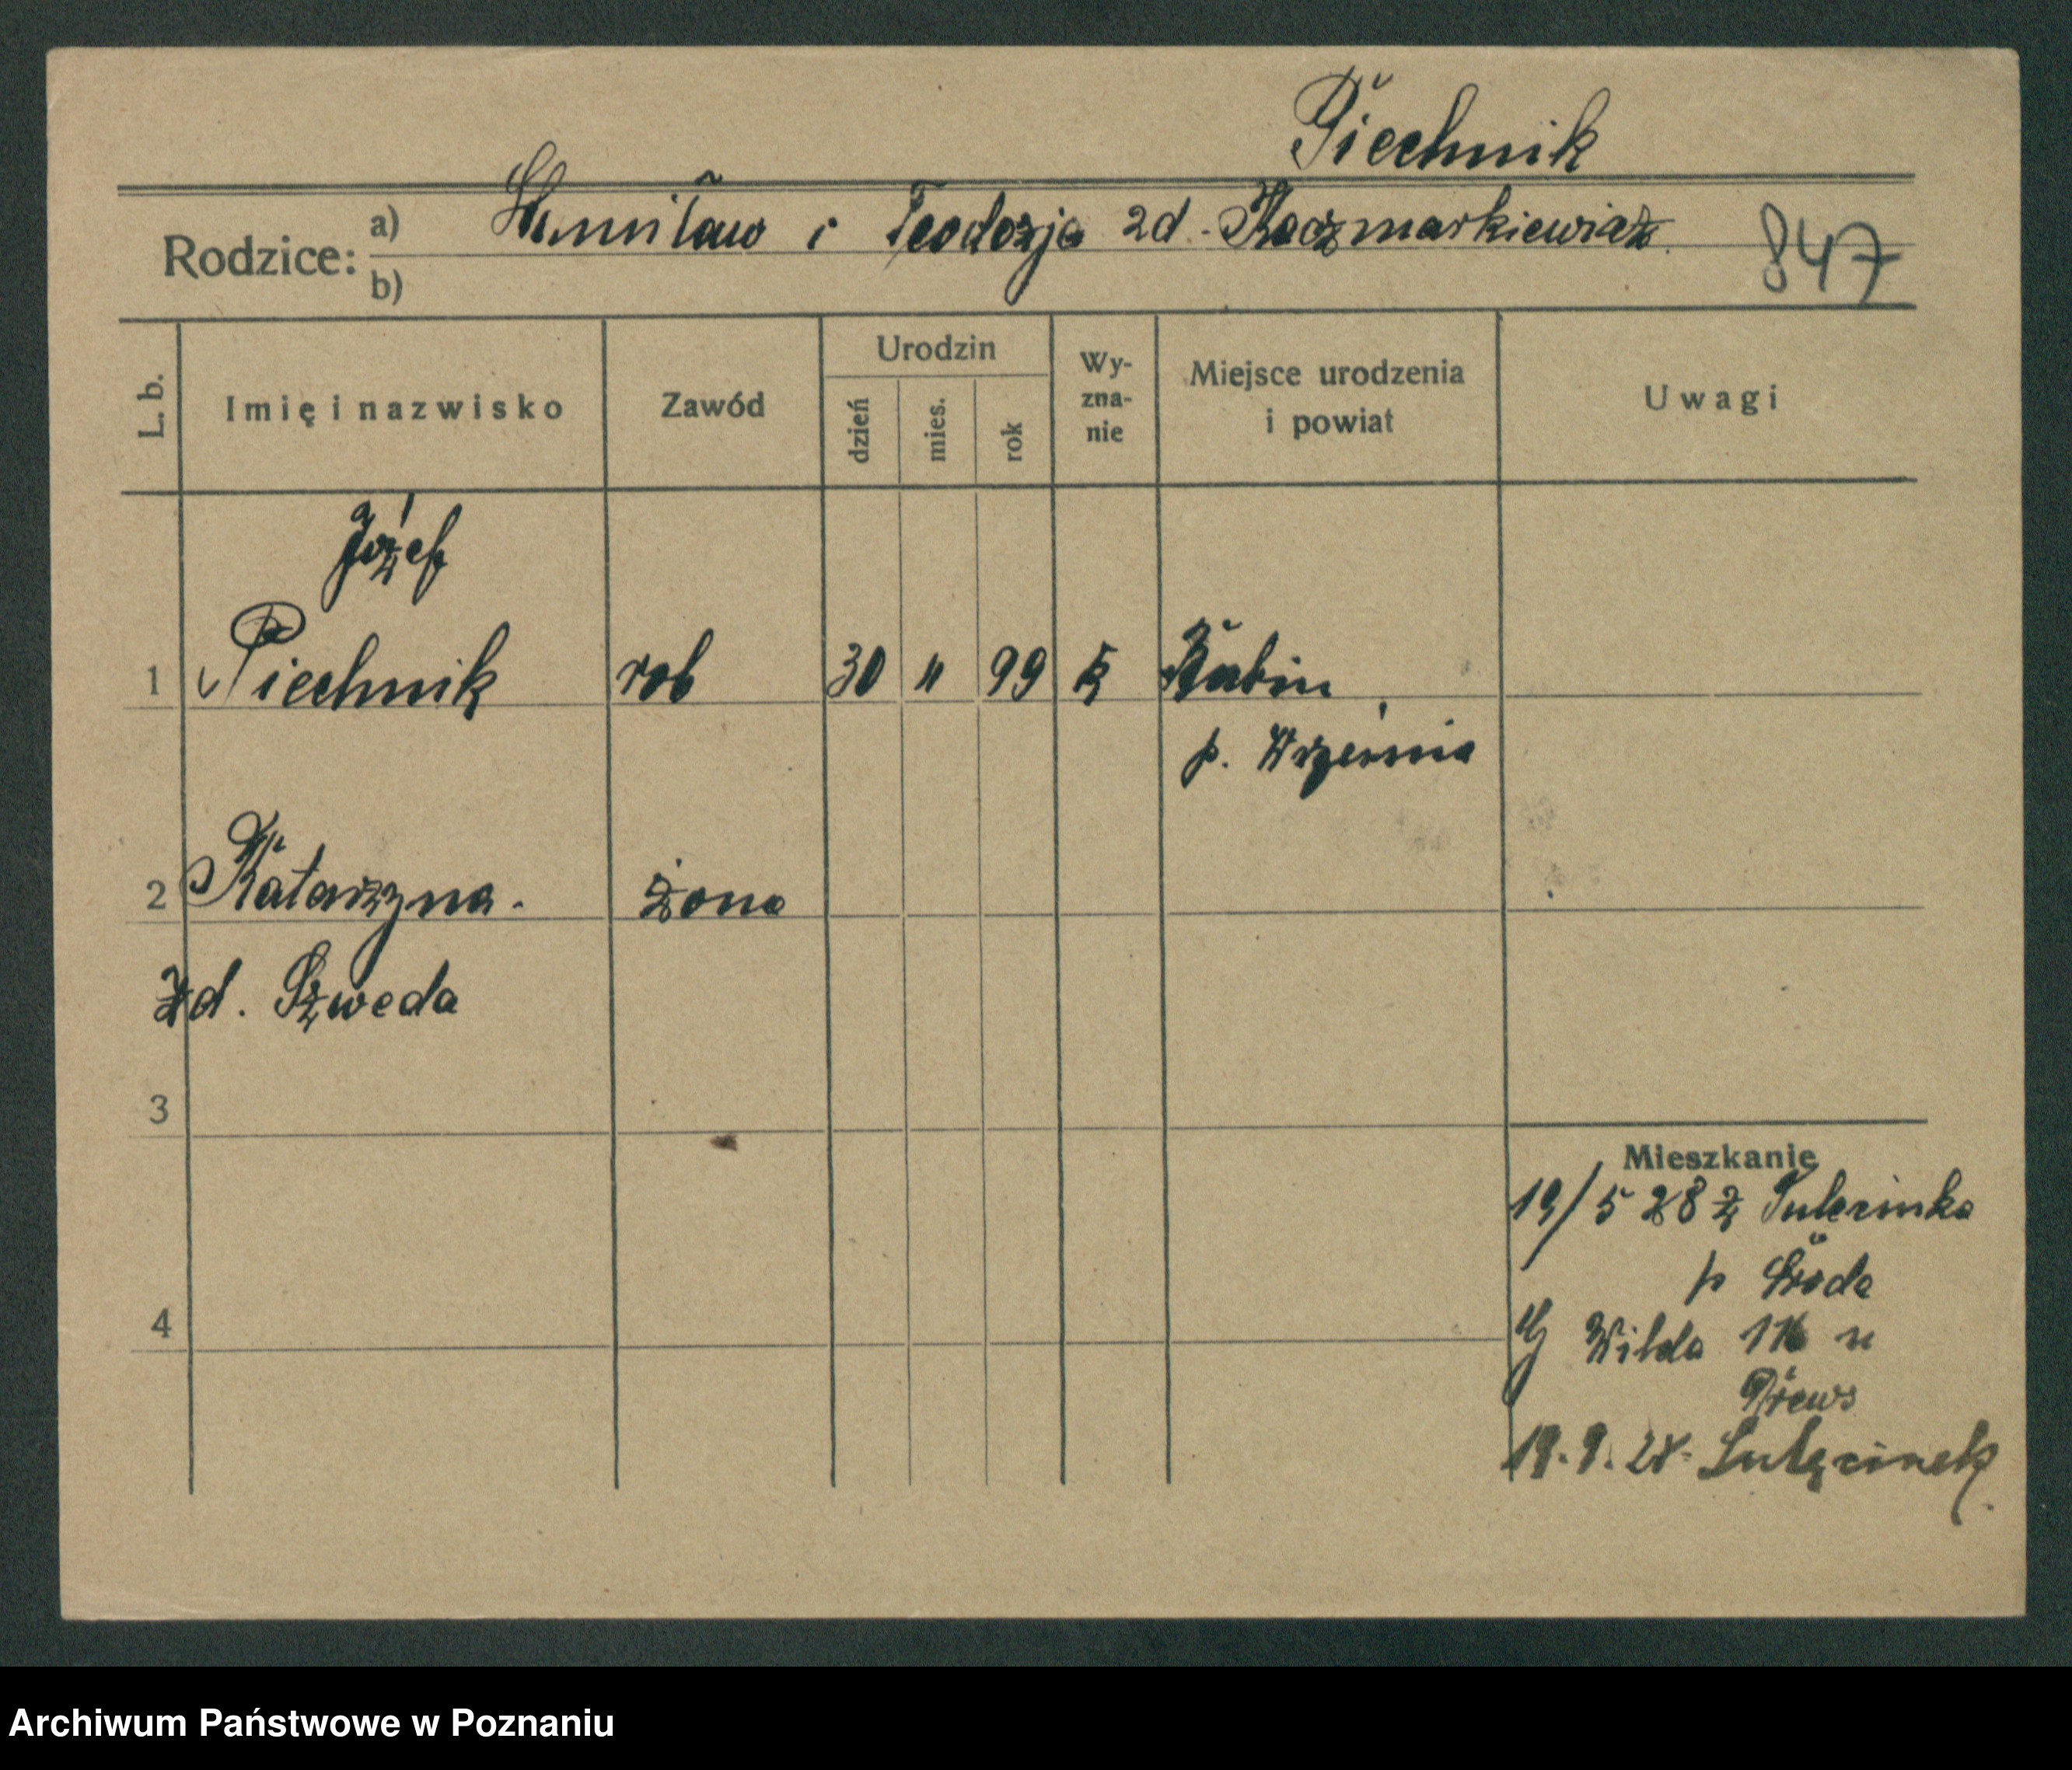 Piechnik
Rodzice: a) i Teodozja zd. Kaczmarkiewicz 847
b)
L. b. Imię i nazwisko Zawód Urodzin dzień mies. rok Wy-zna-nie Miejsce urodzenia i powiat Uwagi
Józef
1 Piechnik rob 30 11 99 k Babin
p. Września
2 Katarzyna. żona
zd. Szweda
3
Mieszkanie
19/5 28 z Sulęcinka
p Środa
4 Wilda 116 u
Drews
19.9.28. Sulęcinek
Archiwum Państwowe w Poznaniu